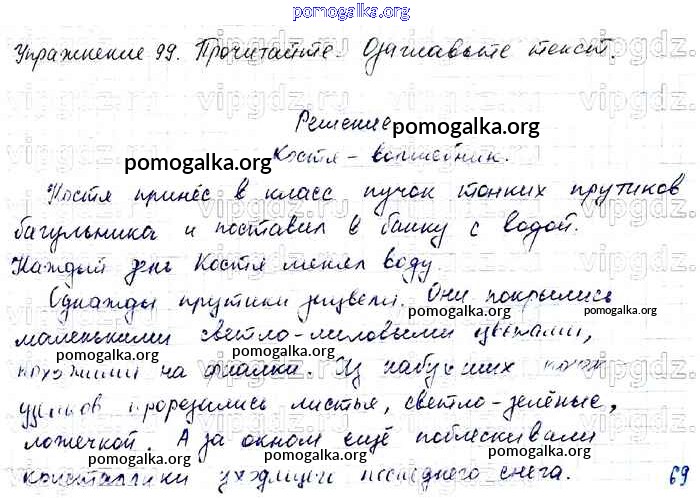 pomogalka.org
Упражнение 99. Прочитайте. Озаглавьте текст.
Решение
pomogalka.org
pomogalka.org
Костя - волшебник.
Костя принёс в класс пучок тонких прутиков
багульника и поставил в банку с водой.
Каждый день Костя менял воду.
Однажды прутики зацвели. Они покрылись
pomogalka.org
маленькими светло-лиловыми цветами,
pomogalka.org
pomogalka.org
похожими на фиалки. Из набухших почек
узелков прорезились листья, светло-зелёные,
pomogalka.org
pomogalka.org
ложечкой. А за окном ещё поблескивали
pomogalka.org
pomogalka.org
кристаллики уходящего последнего снега.
69